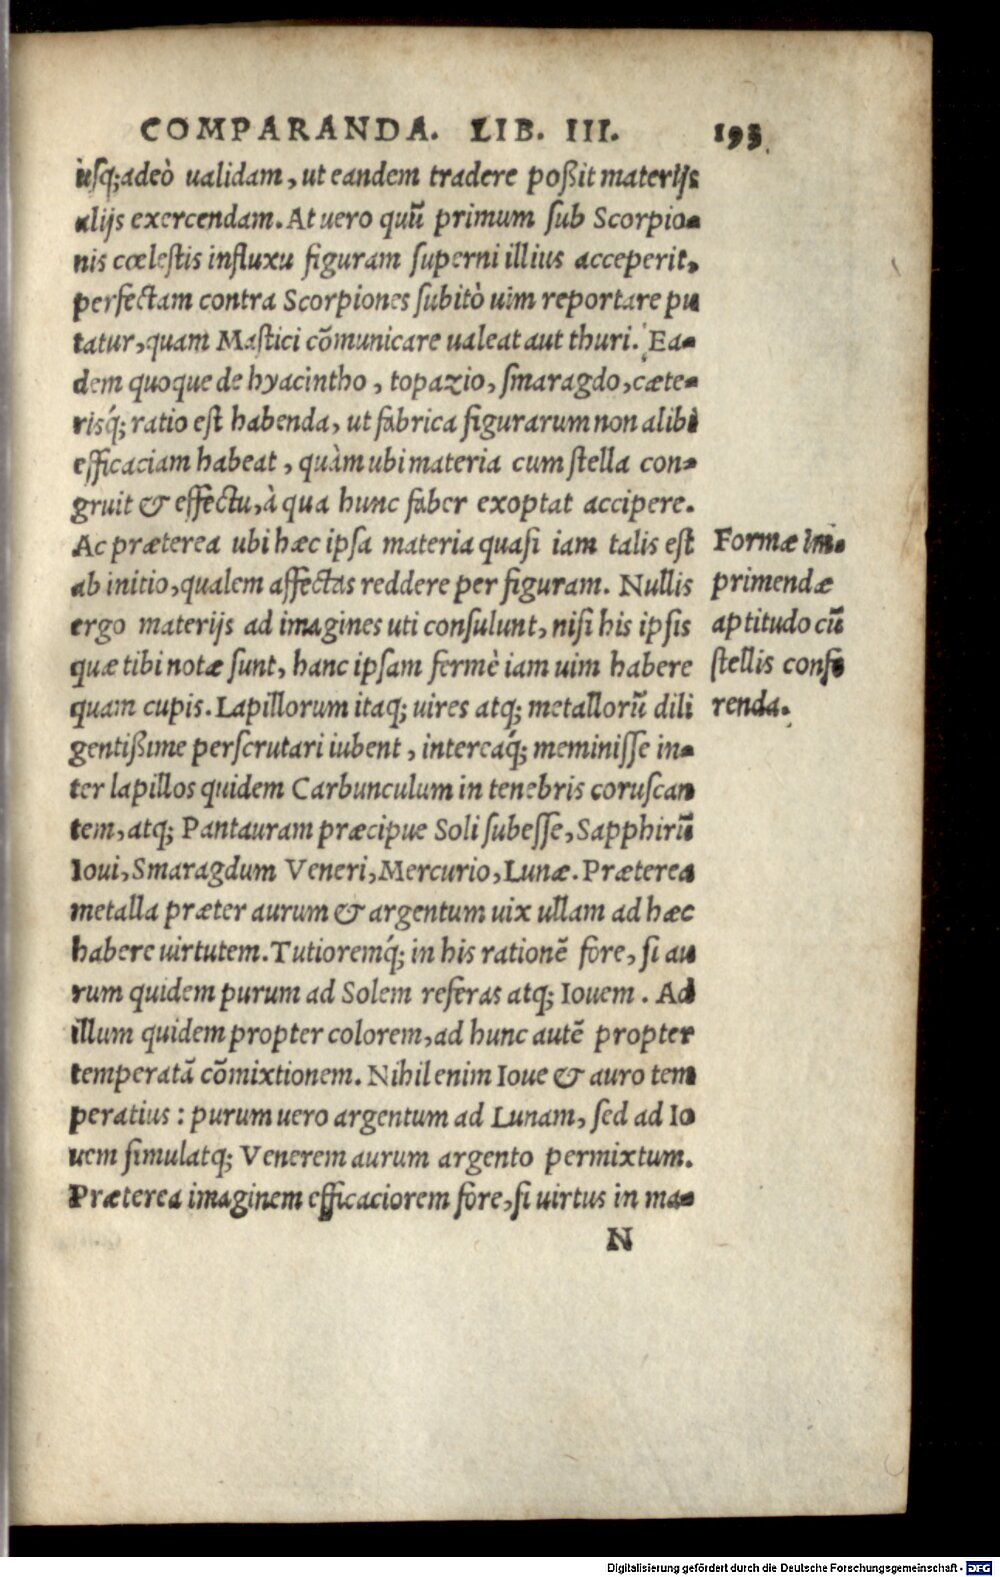 COMPARANDA. LIB. III. 193
usq;adeò ualidam, ut eandem tradere poßit materijs
alijs exercendam. At uero quū primum sub Scorpio-
nis cœlestis influxu figuram superni illius acceperit,
perfectam contra Scorpiones subitò uim reportare pu
tatur, quam Mastici cōmunicare ualeat aut thuri. Ea-
dem quoque de hyacintho, topazio, smaragdo, cæte-
risq́; ratio est habenda, ut fabrica figurarum non alibi
efficaciam habeat, quàm ubi materia cum stella con-
gruit & effectu, à qua hunc faber exoptat accipere.
Ac præterea ubi hæc ipsa materia quasi iam talis est
ab initio, qualem affectas reddere per figuram. Nullis
ergo materijs ad imagines uti consulunt, nisi his ipsis
quæ tibi notæ sunt, hanc ipsam fermè iam uim habere
quam cupis. Lapillorum itaq; uires atq; metallorū dili
gentißime perscrutari iubent, intereaq́; meminisse in-
ter lapillos quidem Carbunculum in tenebris coruscan
tem, atq; Pantauram præcipue Soli subesse, Sapphirū
Ioui, Smaragdum Veneri, Mercurio, Lunæ. Præterea
metalla præter aurum & argentum uix ullam ad hæc
habere uirtutem. Tutioremq́; in his rationē fore, si au
rum quidem purum ad Solem referas atq; Iouem. Ad
illum quidem propter colorem, ad hunc autē propter
temperatā cōmixtionem. Nihil enim Ioue & auro tem
peratius: purum uero argentum ad Lunam, sed ad Io
uem simulatq; Venerem aurum argento permixtum.
Præterea imaginem efficaciorem fore, si uirtus in ma-
N
Formæ im-
primendæ
aptitudo cū
stellis confe
renda.
Digitalisierung gefördert durch die Deutsche Forschungsgemeinschaft - DFG